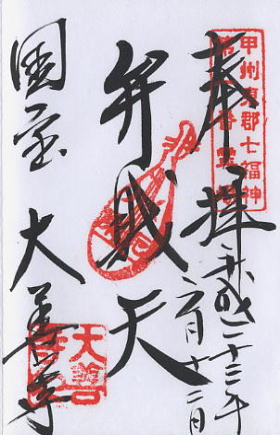 甲州東郡七福神
奉拝
平成二十三年
六月十二日
弁戝天
国宝 大善寺
大善